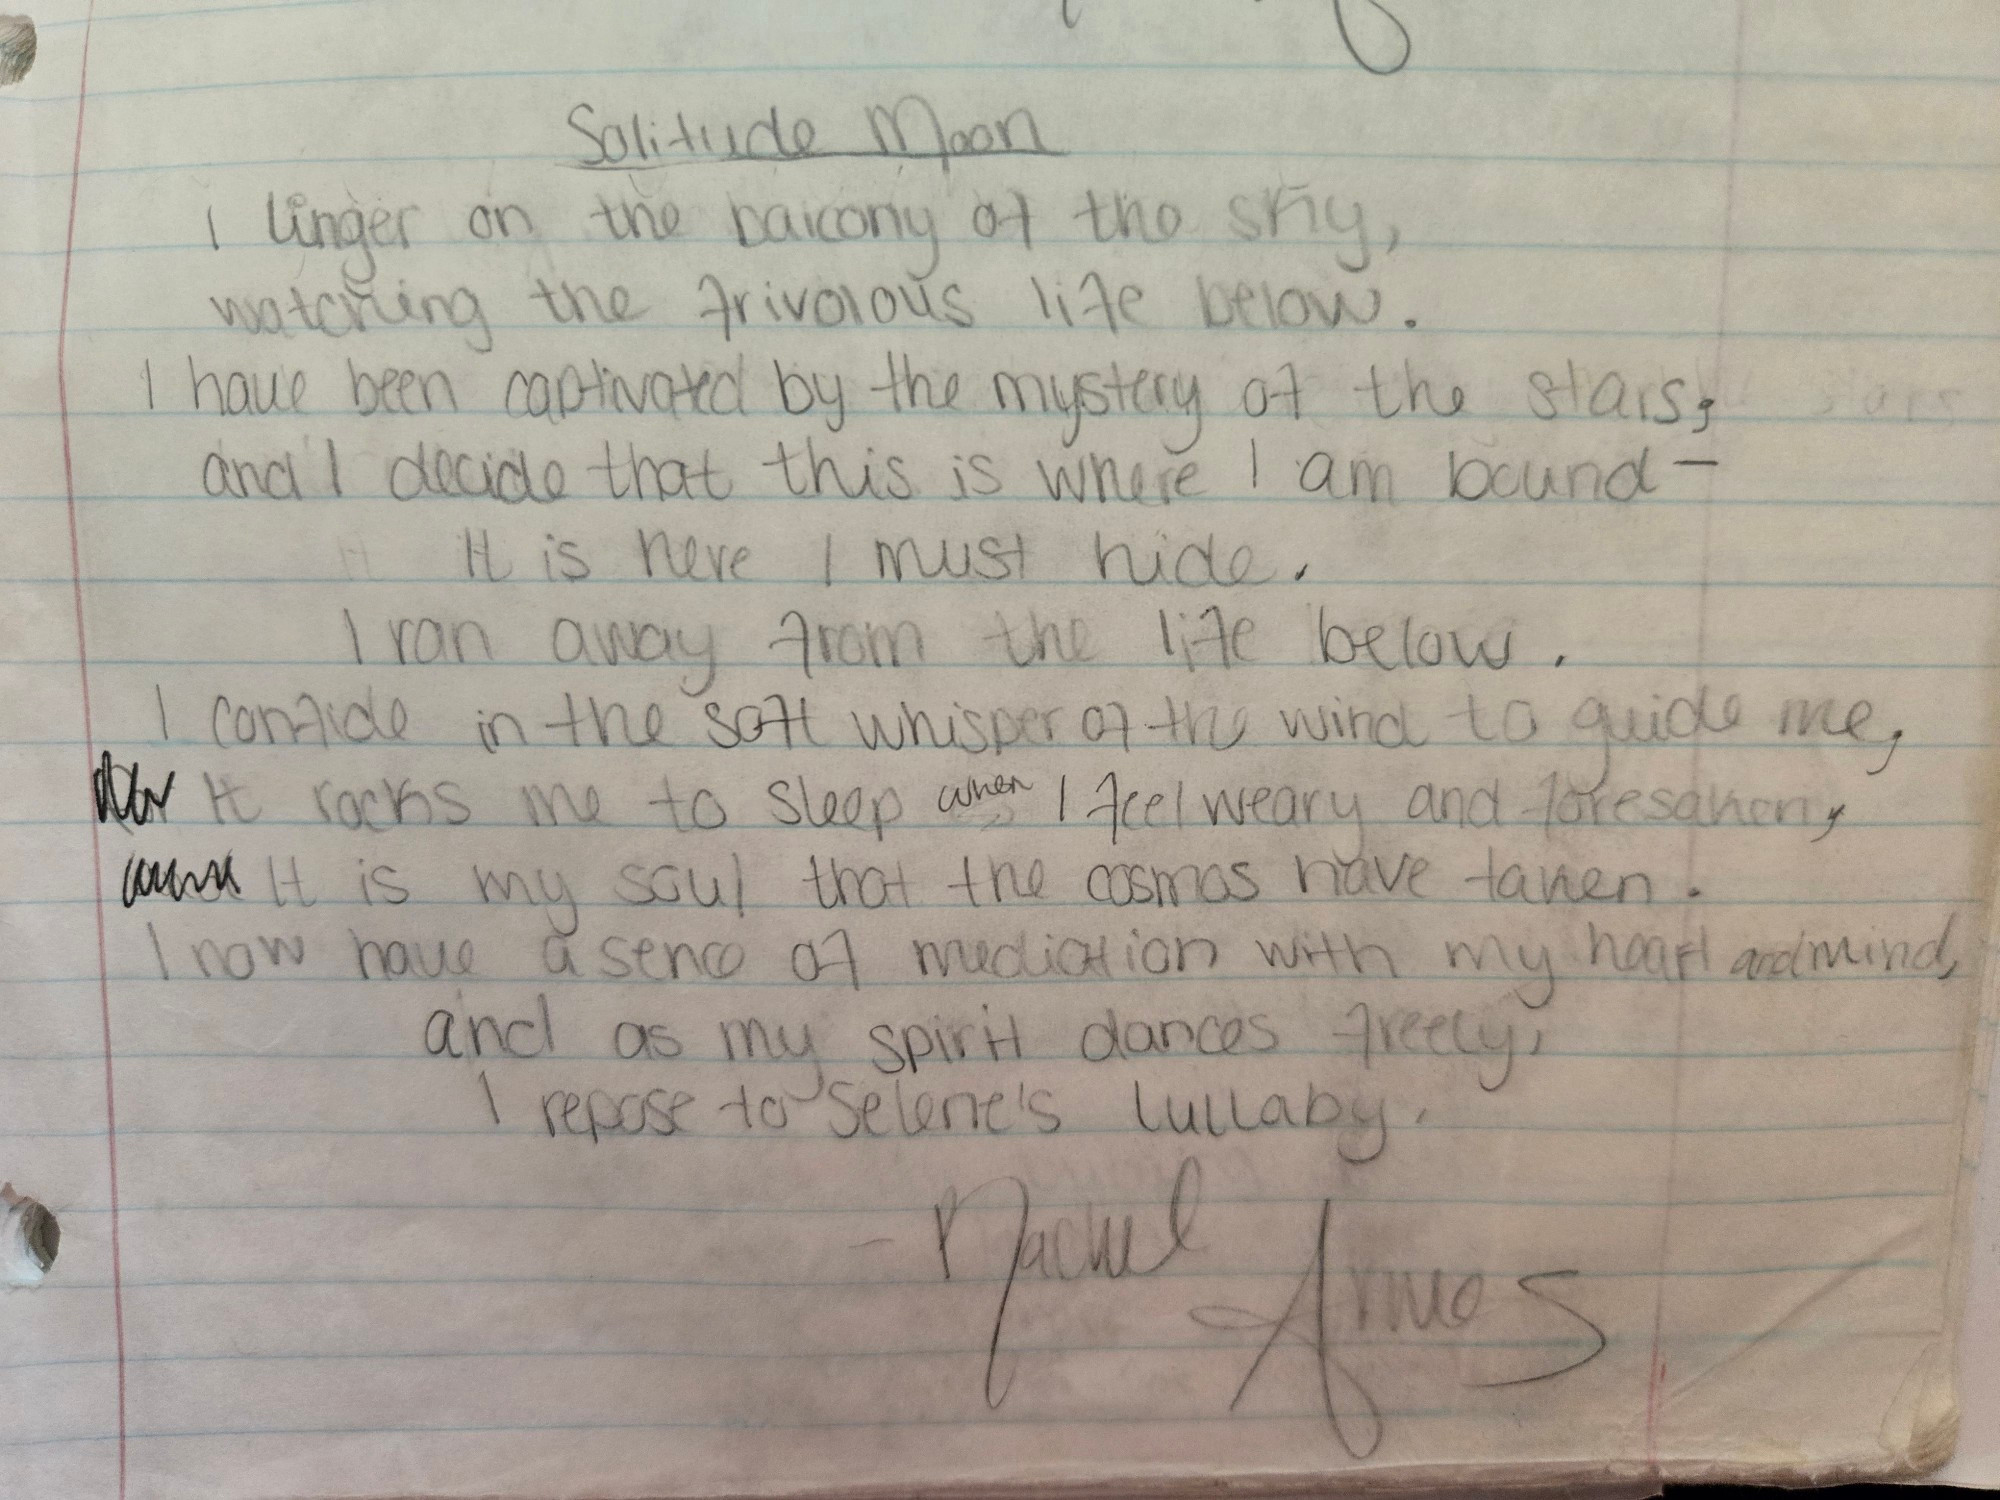 Solitude Moon
I linger on the balcony of the sky,
watching the frivolous life below.
I have been captivated by the mystery of the stars,
and I decide that this is where I am bound -
It is here I must hide.
I ran away from the life below.
I confide in the soft whisper of the wind to guide me,
It rocks me to sleep when I feel weary and foresaken,
It is my soul that the cosmos have taken.
I now have a sence of mediation with my heart and mind,
and as my spirit dances freely,
I repose to Selene's lullaby.
- Rachel